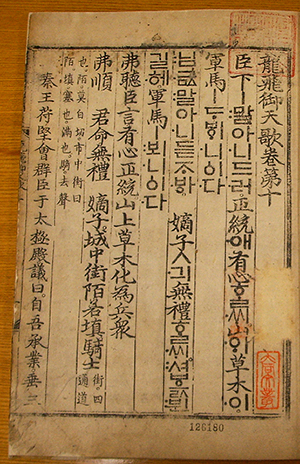 龍飛御天歌卷第十
臣下ㅣ말아니드러正統애有心ᄒᆞᆯᄊᆡ山ᄋᆡ草木이
軍馬ㅣᄃᆞᄫᆡ니ᅌᅵ다
님금말아니듣ᄌᆞᄫᅡ 嫡子ㅅ긔無禮ᄒᆞᆯᄊᆡ셔ᄫᅳᆳ뷘
길헤軍馬ㅣ뵈니ᅌᅵ다
弗聽臣言有心正統山上草木化為兵衆
弗順 君命無禮 嫡子城中街陌若塡騎士 街四通道
也陌莫白切市中街曰
陌塡塞也滿也騎去聲
秦王苻堅會群臣于太極殿議曰自吾承業垂三
126180